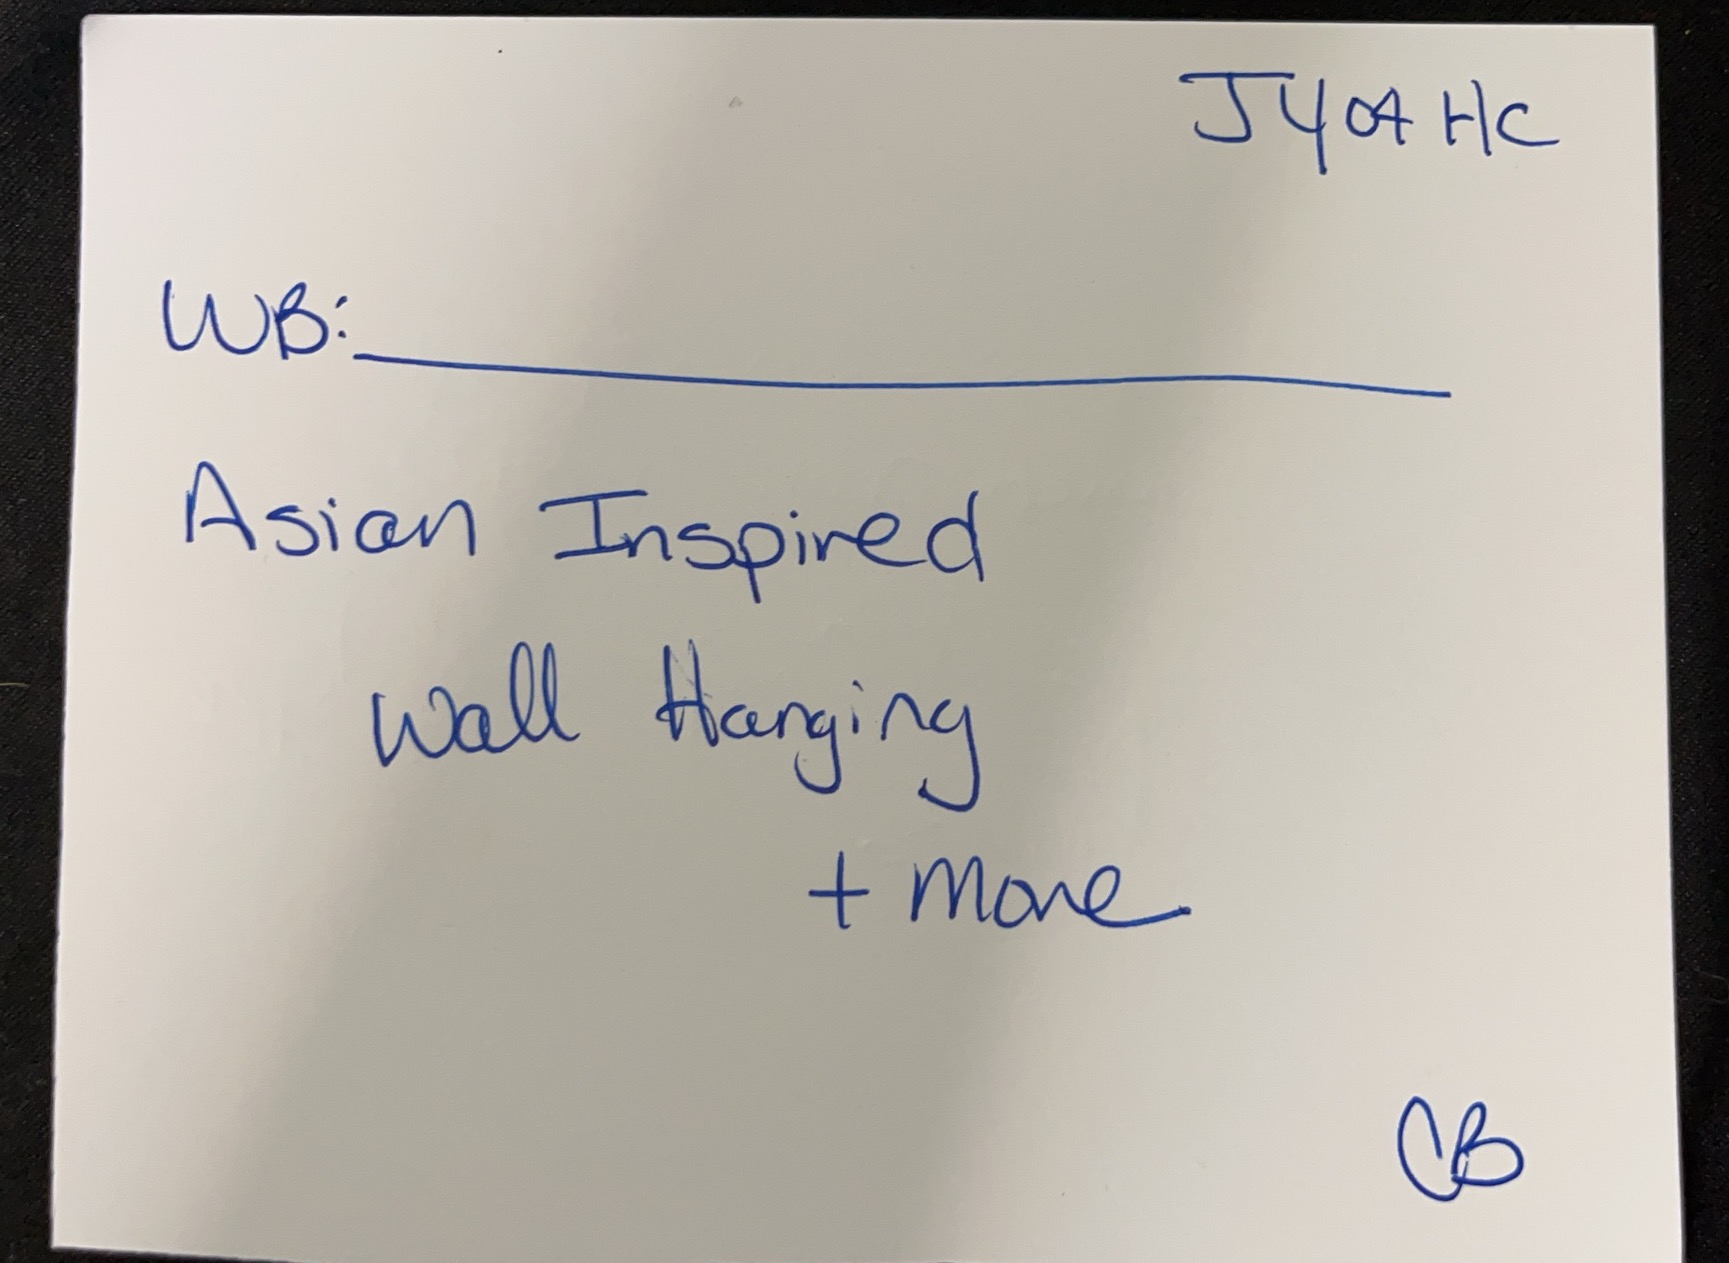 J404 HC
WB:
Asian Inspired
Wall Hanging
+ More
CB